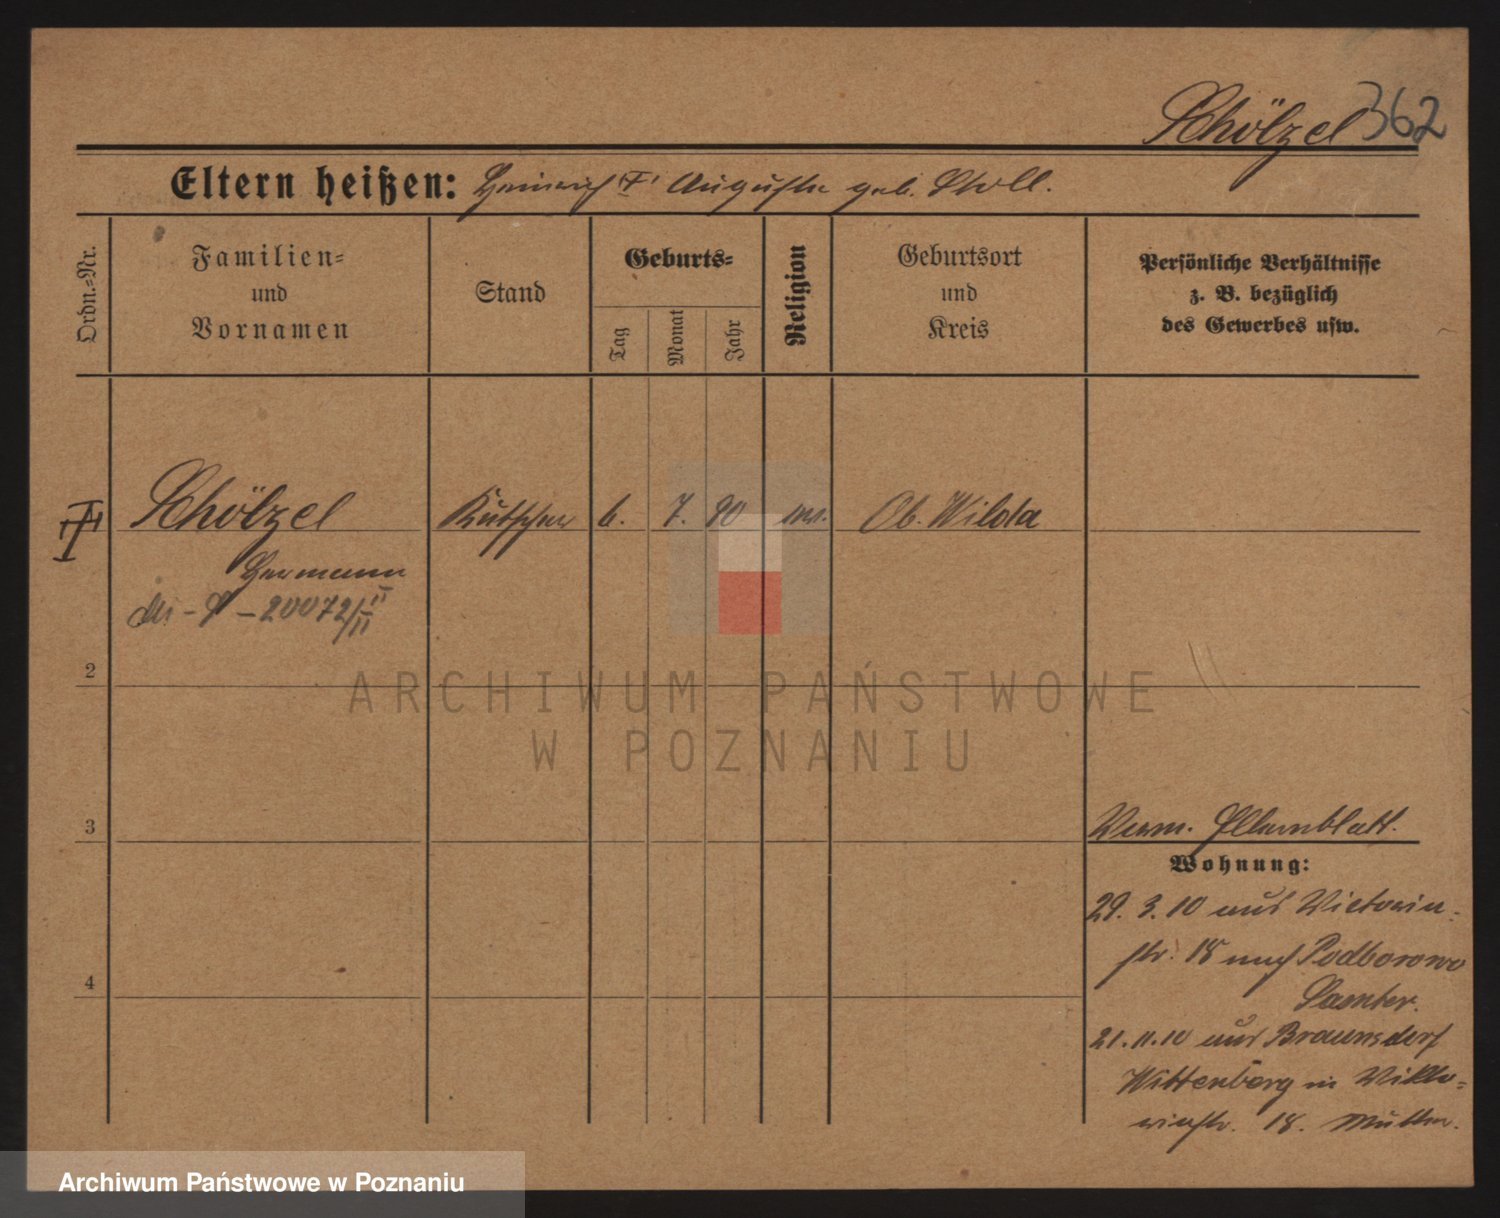 Schölzel 362
Eltern heißen: Heinrich "F" Auguste geb. Stoll.
Ordn.=Nr.
Familien=
und
Vornamen
Stand
Geburts=
Tag
Monat
Jahr
Religion
Geburtsort
und
Kreis
Persönliche Verhältnisse
z. B. bezüglich
des Gewerbes usw.
Schölzel Kutscher 6. 7. 90 ev. Ob. Wilda
Hermann
20072/II
2
ARCHIWUM PAŃSTWOWE
W POZNANIU
3
Verm. Elternblatt.
Wohnung:
29. 3. 10 aus Victoria-
str. 18 nach Podborowo
Samter.
21.11.10 aus Braunsdorf
Wittenberg in Vikto=
riastr. 18. Mutter.
4
Archiwum Państwowe w Poznaniu